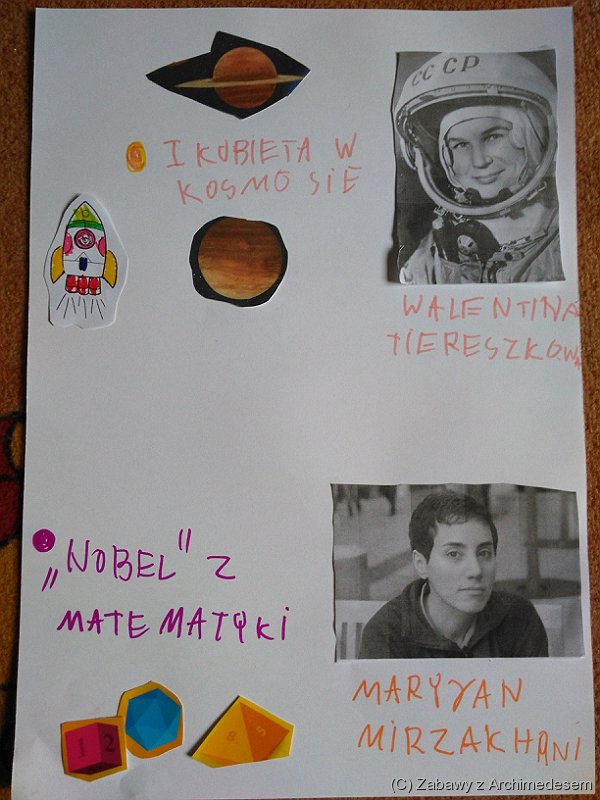 I KOBIETA W
KOSMOSIE
CCCP
WALENTINA
TIERESZKOWA
„NOBEL" Z
MATEMATYKI
MARYJAN
MIRZAKHANI
1 2
8 5
(C) Zabawy z Archimedesem